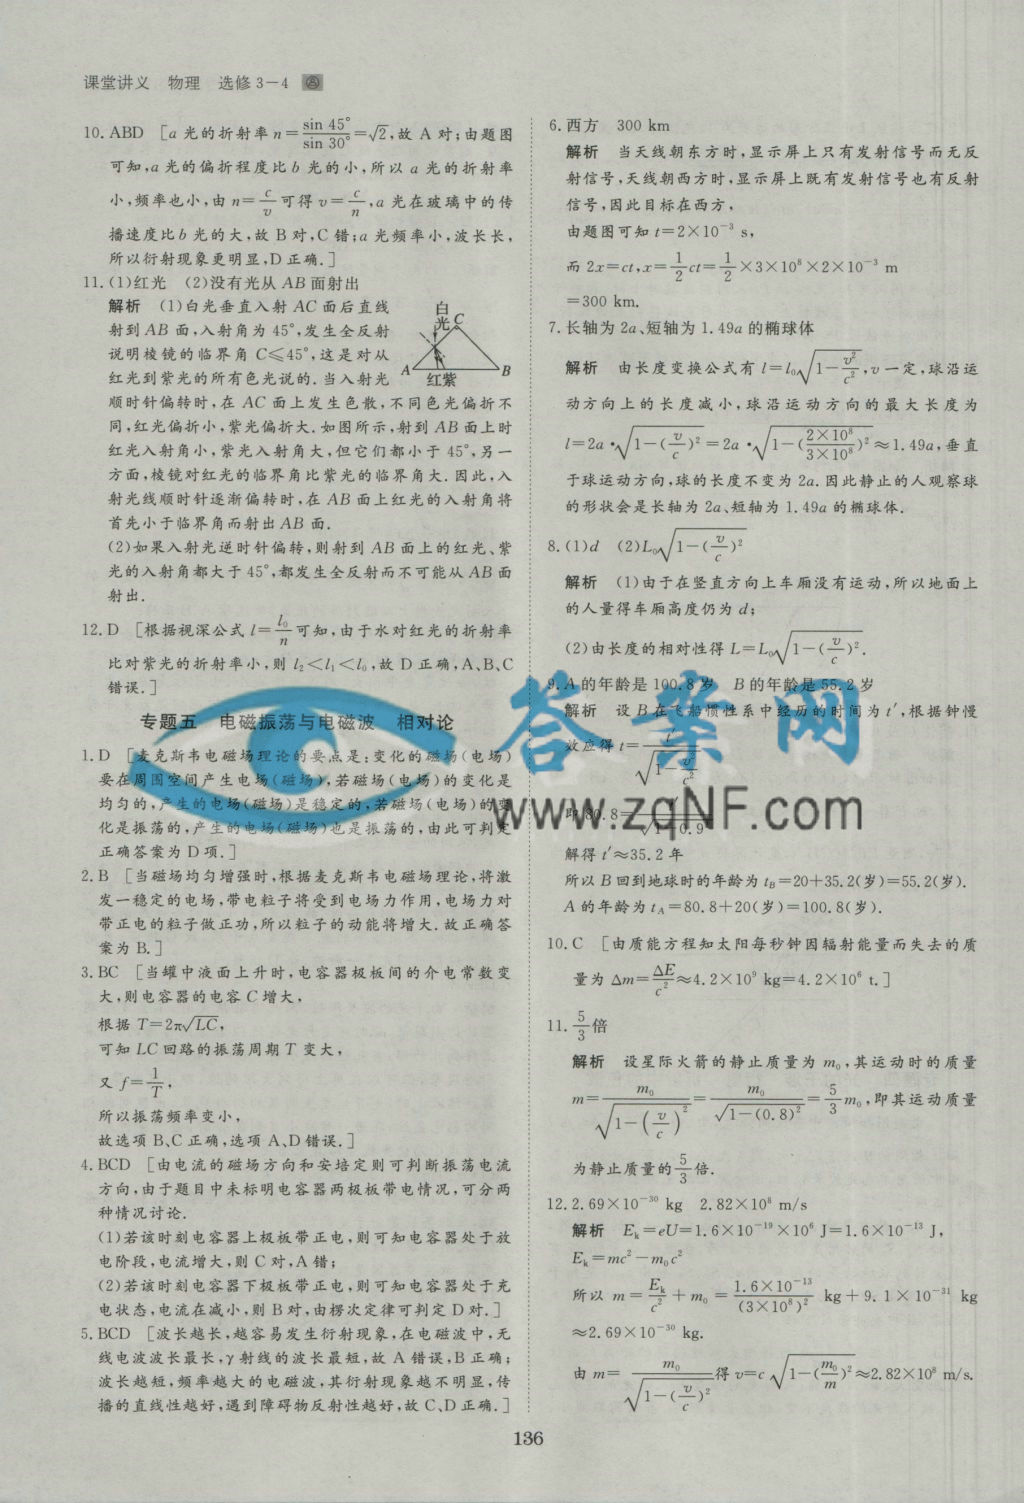 课堂讲义 物理 选修3-4
10. ABD [a光的折射率n=sin 45°/sin 30°=√2,故A对;由题图
可知,a光的偏折程度比b光的小,所以a光的折射率
小,频率也小,由n=c/v可得v=c/n,a光在玻璃中的传
播速度比b光的大,故B对,C错;a光频率小,波长长,
所以衍射现象更明显,D正确.]
11. (1)红光 (2)没有光从AB面射出
解析 (1)白光垂直入射AC面后直线
射到AB面,入射角为45°,发生全反射
说明棱镜的临界角C≤45°,这是对从
红光到紫光的所有色光说的.当入射光
白光 C A 红紫 B
顺时针偏转时,在AC面上发生色散,不同色光偏折不
同,红光偏折小,紫光偏折大.如图所示,射到AB面上时
红光入射角小,紫光入射角大,但它们都小于45°,另一
方面,棱镜对红光的临界角比紫光的临界角大.因此,入
射光线顺时针逐渐偏转时,在AB面上红光的入射角将
首先小于临界角而射出AB面.
(2)如果入射光逆时针偏转,则射到AB面上的红光、紫
光的入射角都大于45°,都发生全反射而不可能从AB面
射出.
12. D [根据视深公式l=l₀/n可知,由于水对红光的折射率
比对紫光的折射率小,则l₂<l₁<l₀,故D正确,A、B、C
错误.]
专题五 电磁振荡与电磁波 相对论
1. D [麦克斯韦电磁场理论的要点是:变化的磁场(电场)
要在周围空间产生电场(磁场),若磁场(电场)的变化是
均匀的,产生的电场(磁场)是稳定的,若磁场(电场)的变
化是振荡的,产生的电场(磁场)也是振荡的,由此可判定
正确答案为D项.]
2. B [当磁场均匀增强时,根据麦克斯韦电磁场理论,将激
发一稳定的电场,带电粒子将受到电场力作用,电场力对
带正电的粒子做正功,所以粒子的动能将增大.故正确答
案为B.]
3. BC [当罐中液面上升时,电容器极板间的介电常数变
大,则电容器的电容C增大,
根据T=2π√LC,
可知LC回路的振荡周期T变大,
又f=1/T,
所以振荡频率变小,
故选项B、C正确,选项A、D错误.]
4. BCD [由电流的磁场方向和安培定则可判断振荡电流
方向,由于题目中未标明电容器两极板带电情况,可分两
种情况讨论.
(1)若该时刻电容器上极板带正电,则可知电容器处于放
电阶段,电流增大,则C对,A错;
(2)若该时刻电容器下极板带正电,则可知电容器处于充
电状态,电流在减小,则B对,由楞次定律可判定D对.]
5. BCD [波长越长,越容易发生衍射现象,在电磁波中,无
线电波波长最长,γ射线的波长最短,故A错误,B正确;
波长越短,频率越大的电磁波,其衍射现象越不明显,传
播的直线性越好,遇到障碍物反射性越好,故C、D正确.]
6. 西方 300 km
解析 当天线朝东方时,显示屏上只有发射信号而无反
射信号,天线朝西方时,显示屏上既有发射信号也有反射
信号,因此目标在西方,
由题图可知t=2×10⁻³ s,
而2x=ct,x=1/2ct=1/2×3×10⁸×2×10⁻³ m
=300 km.
7. 长轴为2a、短轴为1.49a的椭球体
解析 由长度变换公式有l=l₀√(1-v²/c²),v一定,球沿运
动方向上的长度减小,球沿运动方向的最大长度为
l=2a·√(1-(v/c)²)=2a·√(1-(2×10⁸/3×10⁸)²)≈1.49a,垂直
于球运动方向,球的长度不变为2a.因此静止的人观察球
的形状会是长轴为2a、短轴为1.49a的椭球体.
8. (1)d (2)L₀√(1-(v/c)²)
解析 (1)由于在竖直方向上车厢没有运动,所以地面上
的人量得车厢高度仍为d;
(2)由长度的相对性得L=L₀√(1-(v/c)²).
9. A的年龄是100.8岁 B的年龄是55.2岁
解析 设B在飞船惯性系中经历的时间为t′,根据钟慢
效应得t=t′/√(1-v²/c²)
即80.8=t′/√(1-0.9²)
解得t′≈35.2年
所以B回到地球时的年龄为t_B=20+35.2(岁)=55.2(岁).
A的年龄为t_A=80.8+20(岁)=100.8(岁).
10. C [由质能方程知太阳每秒钟因辐射能量而失去的质
量为Δm=ΔE/c²≈4.2×10⁹ kg=4.2×10⁶ t.]
11. 5/3倍
解析 设星际火箭的静止质量为m₀,其运动时的质量
m=m₀/√(1-(v/c)²)=m₀/√(1-(0.8)²)=5/3m₀,即其运动质量
为静止质量的5/3倍.
12. 2.69×10⁻³⁰ kg 2.82×10⁸ m/s
解析 Eₖ=eU=1.6×10⁻¹⁹×10⁶ J=1.6×10⁻¹³ J,
Eₖ=mc²-m₀c²
所以m=Eₖ/c²+m₀=1.6×10⁻¹³/(3×10⁸)² kg+9.1×10⁻³¹ kg
≈2.69×10⁻³⁰ kg.
由m=m₀/√(1-(v/c)²)得v=c√(1-(m₀/m)²)≈2.82×10⁸ m/s.
答案网
www.zqNF.com
136